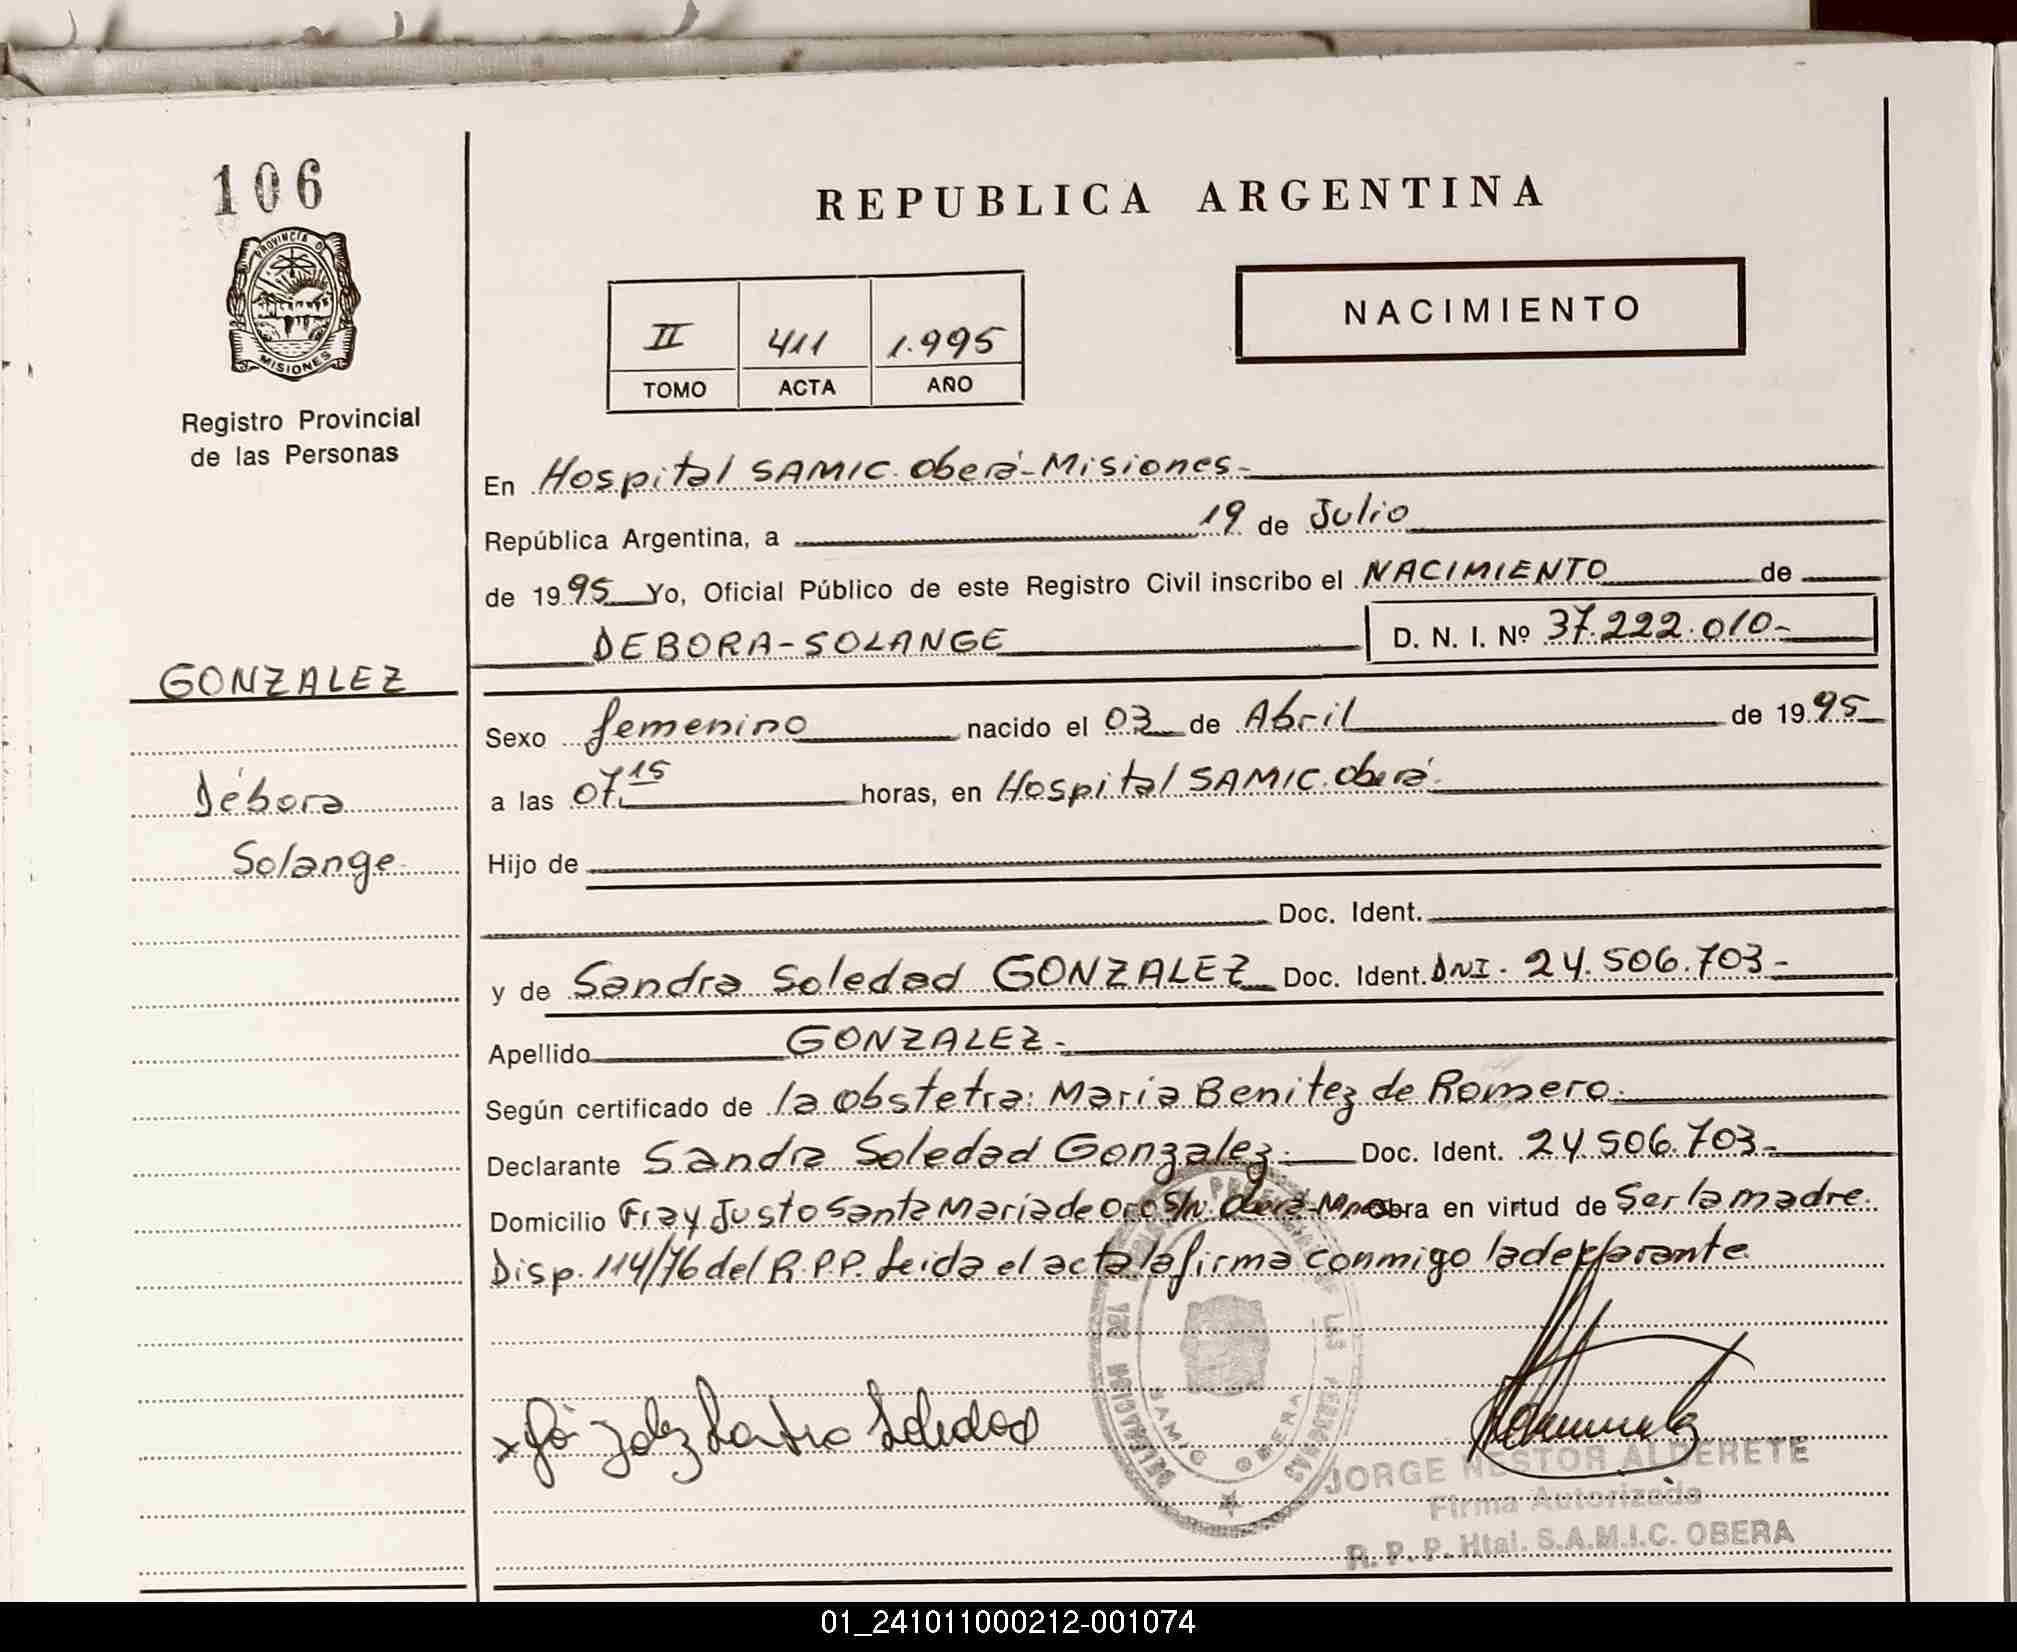 106
PROVINCIA DE
MISIONES
Registro Provincial
de las Personas
GONZALEZ
Débora
Solange
REPUBLICA ARGENTINA
II 411 1.995
TOMO ACTA AÑO
NACIMIENTO
En Hospital SAMIC. Oberá-Misiones-
República Argentina, a 19 de Julio
de 1995 Yo, Oficial Público de este Registro Civil inscribo el NACIMIENTO de
DEBORA-SOLANGE D. N. I. Nº 37.222.010-
Sexo femenino nacido el 03 de Abril de 1995
a las 07.15 horas, en Hospital SAMIC. Oberá.
Hijo de
Doc. Ident.
y de Sandra Soledad GONZALEZ Doc. Ident. DNI. 24.506.703-
Apellido GONZALEZ-
Según certificado de la obstetra: Maria Benitez de Romero.
Declarante Sandra Soledad Gonzalez. Doc. Ident. 24.506.703-
Domicilio Fray Justo Santa María de Oro S/n. Oberá-Mnes obra en virtud de Ser la madre.
Disp. 114/76 del R.P.P. Leida el acta la firma conmigo la declarante.
SAMIC OBERA
JORGE NESTOR ALDERETE
Firma Autorizada
R. P. P. Htal. S.A.M.I.C. OBERA
01_241011000212-001074